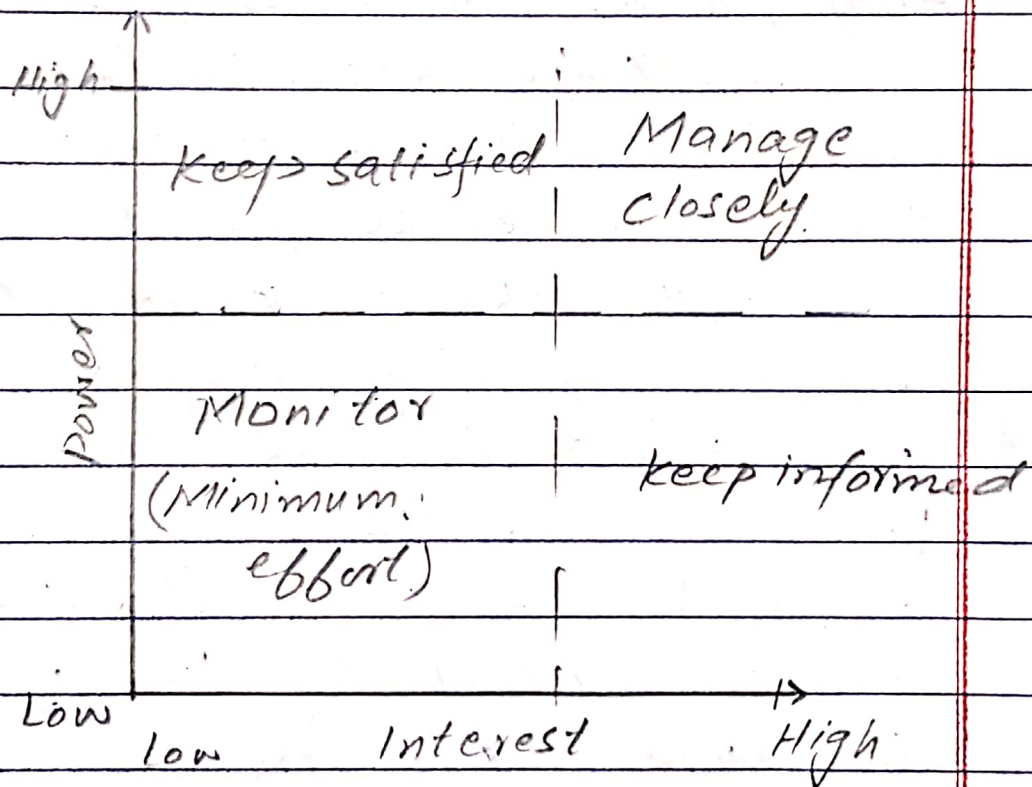 High
Keep satisfied
Manage
closely
Power
Monitor
(Minimum
effort)
keep informed
Low
low Interest High